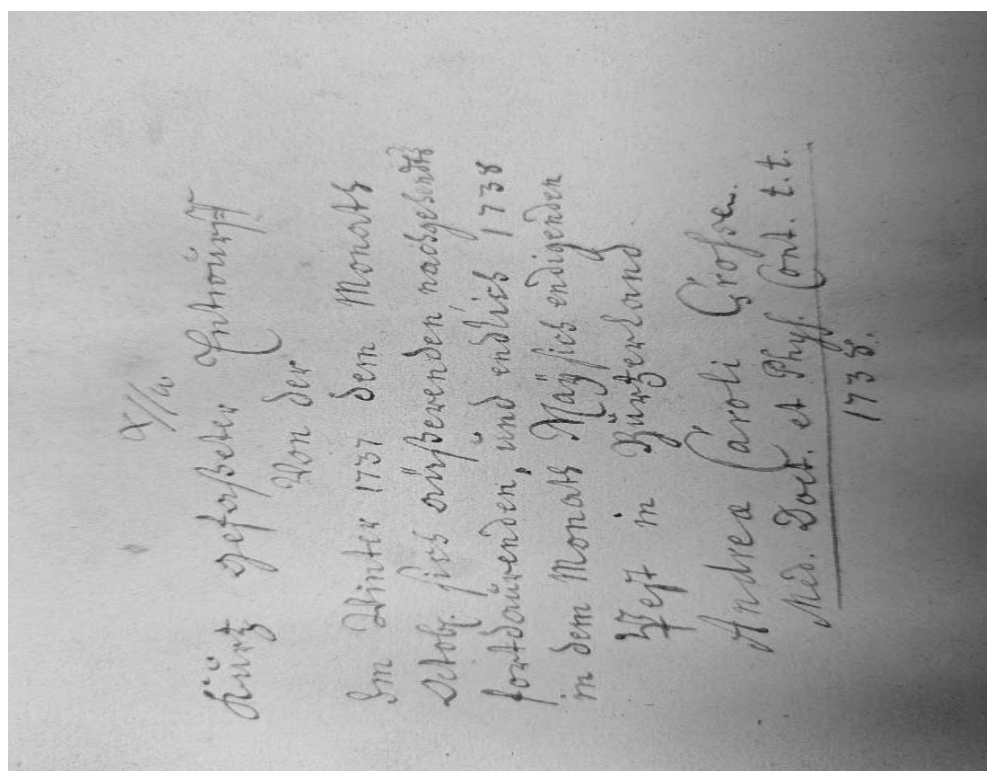 X//w.
Kürtz gefaßeter Entwurff
Von der
Im Winter 1737 dem Monath
Octobr. sich äußerenden nachgehends
fortdaurenden, und endlich 1738
in dem Monath Mäy sich endigenden
Pest in Bürtzerland
Andrea Caroli Großen.
Med. Doct. et Phys. Cont. t.t.
1738.